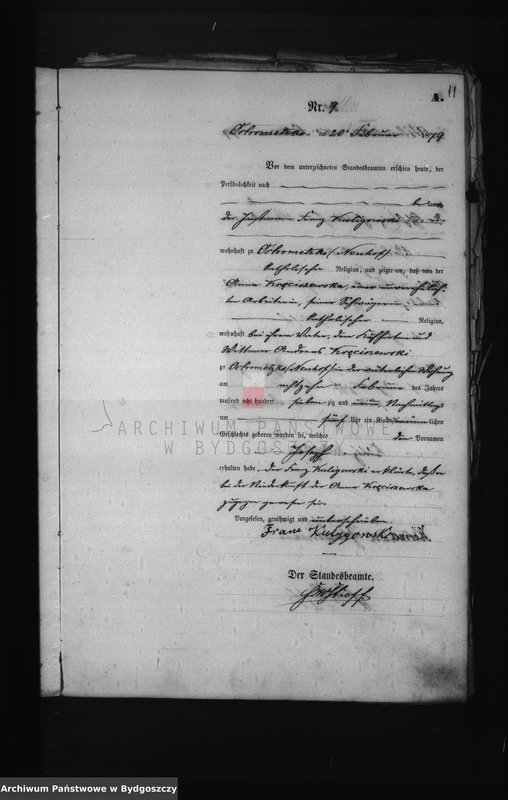 A. 11
Nr. 9.
Ostrometzko, am 20ᵗ Februar 1879.
Vor dem unterzeichneten Standesbeamten erschien heute, der
Persönlichkeit nach
be kannt,
der Instmann Franz Kuligowski
wohnhaft zu Ostrometzko (Neuhof)
katholischer Religion, und zeigte an, daß von der
Anna Kręciszewska, einer unverehelich-
ten Arbeiterin, seiner Schwägerin
katholischer Religion,
wohnhaft bei ihrem Vater, dem Kuhhirten und
Wittwer Andreas Kręciszewski
zu Ostrometzko (Neuhof) in der väterlichen Wohnung
am Februar des Jahres
tausend acht hundert sieben zig und neun, Nachmittags
um fünf Uhr ein Kind männ lichen
Geschlechts geboren worden sei, welches den Vornamen
Joseph
erhalten habe. Der Franz Kuligowski erklärte, daß er
bei der Niederkunft der Anna Kręciszewska
zugegen gewesen sei.
Vorgelesen, genehmigt und unterschrieben.
Franc Kulygowski
Der Standesbeamte.
ARCHIWUM PAŃSTWOWE
W BYDGOSZCZY
Archiwum Państwowe w Bydgoszczy